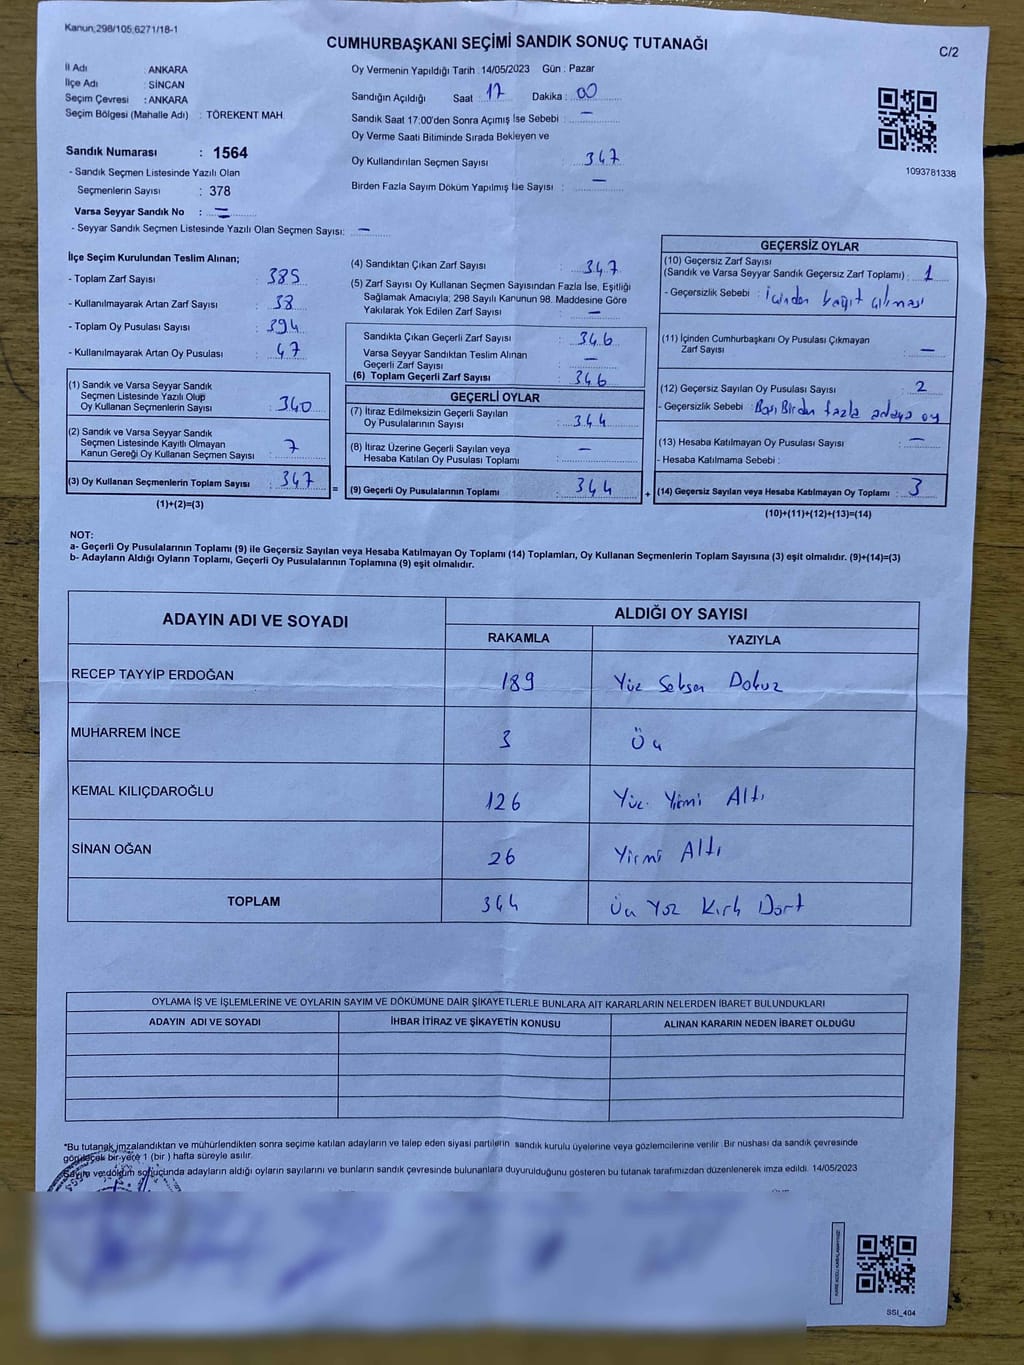 Kanun:298/105,6271/18-1
CUMHURBAŞKANI SEÇİMİ SANDIK SONUÇ TUTANAĞI
C/2
İl Adı : ANKARA
İlçe Adı : SİNCAN
Seçim Çevresi : ANKARA
Seçim Bölgesi (Mahalle Adı) : TÖREKENT MAH.
Sandık Numarası : 1564
- Sandık Seçmen Listesinde Yazılı Olan
Seçmenlerin Sayısı : 378
Varsa Seyyar Sandık No : –
- Seyyar Sandık Seçmen Listesinde Yazılı Olan Seçmen Sayısı: –
Oy Vermenin Yapıldığı Tarih : 14/05/2023 Gün : Pazar
Sandığın Açıldığı Saat : 17 Dakika : 00
Sandık Saat 17:00'den Sonra Açımış İse Sebebi : –
Oy Verme Saati Bitiminde Sırada Bekleyen ve
Oy Kullandırılan Seçmen Sayısı : 347
Birden Fazla Sayım Döküm Yapılmış İse Sayısı : –
1093781338
İlçe Seçim Kurulundan Teslim Alınan;
- Toplam Zarf Sayısı : 385
- Kullanılmayarak Artan Zarf Sayısı : 38
- Toplam Oy Pusulası Sayısı : 394
- Kullanılmayarak Artan Oy Pusulası : 47
(1) Sandık ve Varsa Seyyar Sandık
Seçmen Listesinde Yazılı Olup
Oy Kullanan Seçmenlerin Sayısı : 340
(2) Sandık ve Varsa Seyyar Sandık
Seçmen Listesinde Kayıtlı Olmayan
Kanun Gereği Oy Kullanan Seçmen Sayısı : 7
(3) Oy Kullanan Seçmenlerin Toplam Sayısı : 347
(1)+(2)=(3)
=
(4) Sandıktan Çıkan Zarf Sayısı : 347
(5) Zarf Sayısı Oy Kullanan Seçmen Sayısından Fazla İse, Eşitliği
Sağlamak Amacıyla; 298 Sayılı Kanunun 98. Maddesine Göre
Yakılarak Yok Edilen Zarf Sayısı : –
Sandıkta Çıkan Geçerli Zarf Sayısı : 346
Varsa Seyyar Sandıktan Teslim Alınan
Geçerli Zarf Sayısı : –
(6) Toplam Geçerli Zarf Sayısı : 346
GEÇERLİ OYLAR
(7) İtiraz Edilmeksizin Geçerli Sayılan
Oy Pusulalarının Sayısı : 344
(8) İtiraz Üzerine Geçerli Sayılan veya
Hesaba Katılan Oy Pusulası Toplamı : –
(9) Geçerli Oy Pusulalarının Toplamı : 344
+
GEÇERSİZ OYLAR
(10) Geçersiz Zarf Sayısı
(Sandık ve Varsa Seyyar Sandık Geçersiz Zarf Toplamı) : 1
- Geçersizlik Sebebi : İçinden kağıt çıkması
(11) İçinden Cumhurbaşkanı Oy Pusulası Çıkmayan
Zarf Sayısı : –
(12) Geçersiz Sayılan Oy Pusulası Sayısı : 2
- Geçersizlik Sebebi : Birden fazla adaya oy
(13) Hesaba Katılmayan Oy Pusulası Sayısı : –
- Hesaba Katılmama Sebebi :
(14) Geçersiz Sayılan veya Hesaba Katılmayan Oy Toplamı : 3
(10)+(11)+(12)+(13)=(14)
NOT:
a- Geçerli Oy Pusulalarının Toplamı (9) ile Geçersiz Sayılan veya Hesaba Katılmayan Oy Toplamı (14) Toplamları, Oy Kullanan Seçmenlerin Toplam Sayısına (3) eşit olmalıdır. (9)+(14)=(3)
b- Adayların Aldığı Oyların Toplamı, Geçerli Oy Pusulalarının Toplamına (9) eşit olmalıdır.
ADAYIN ADI VE SOYADI
ALDIĞI OY SAYISI
RAKAMLA YAZIYLA
RECEP TAYYİP ERDOĞAN 189 Yüz Seksen Dokuz
MUHARREM İNCE 3 Üç
KEMAL KILIÇDAROĞLU 126 Yüz Yirmi Altı
SİNAN OĞAN 26 Yirmi Altı
TOPLAM 344 Üç Yüz Kırk Dört
OYLAMA İŞ VE İŞLEMLERİNE VE OYLARIN SAYIM VE DÖKÜMÜNE DAİR ŞİKAYETLERLE BUNLARA AİT KARARLARIN NELERDEN İBARET BULUNDUKLARI
ADAYIN ADI VE SOYADI İHBAR İTİRAZ VE ŞİKAYETİN KONUSU ALINAN KARARIN NEDEN İBARET OLDUĞU
*Bu tutanak imzalandıktan ve mühürlendikten sonra seçime katılan adayların ve talep eden siyasi partilerin sandık kurulu üyelerine veya gözlemcilerine verilir. Bir nüshası da sandık çevresinde
görülecek bir yere 1 (bir) hafta süreyle asılır.
Sayım ve döküm sonucunda adayların aldığı oyların sayılarını ve bunların sandık çevresinde bulunanlara duyurulduğunu gösteren bu tutanak tarafımızdan düzenlenerek imza edildi. 14/05/2023
SSI_404